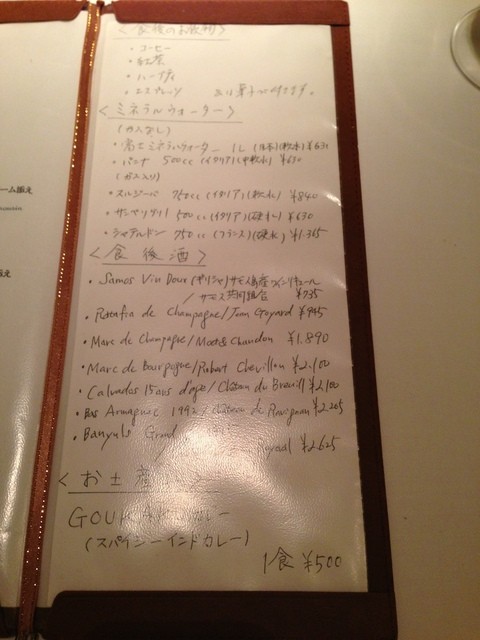 <食後のお飲物>
・コーヒー
・紅茶
・ハーブティ
・エスプレッソ
<ミネラルウォーター>
(ガスなし)
・富士ミネラルウォーター 1L (日本)(軟水) ¥630
・パンナ 500cc (イタリア)(中軟水) ¥630
(ガス入り)
・スルジーバ 750cc (イタリア)(軟水) ¥840
・サンペリグリノ 500cc (イタリア)(硬水) ¥630
・シャテルドン 750cc (フランス)(硬水) ¥1.365
<食後酒>
・Samos Vin Doux (ギリシャ)サモス島産ワインリキュール
/ サモス共同組合 ¥735
・Ratafia de Champagne / Jean Goyard ¥945
・Marc de Champagne / Moet & Chandon ¥1.890
・Marc de Bourgogne / Robert Chevillon ¥2.100
・Calvados 15ans d'age / Château du Breuil ¥2.100
・Bas Armagnac 199 / Château de Ravignan ¥2.205
・Banyuls Grand
¥2.625
<お土産
GOU カレー
(スパイシーインドカレー)
1食 ¥500